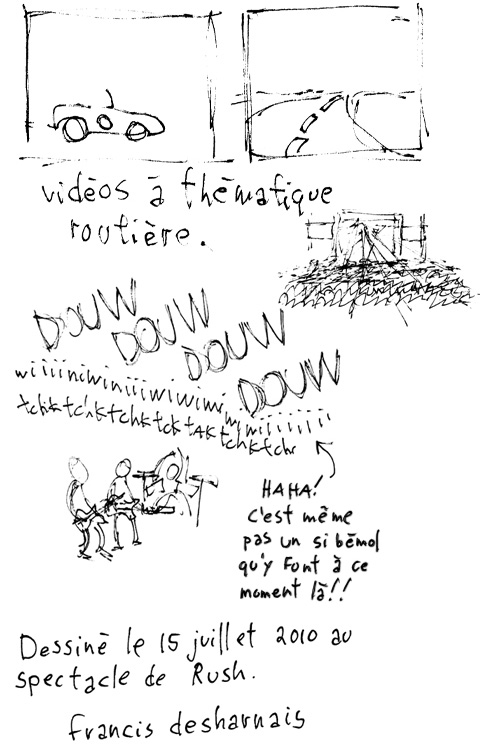 vidéos à thématique
routière.
DOUW
DOUW
DOUW
DOUW
wiiiiniwiniiiwiwiwiwiwiniiiiii
tchktchktchktcktaktchktchr
HAHA!
c'est même
pas un si bémol
qu'y Font à ce
moment là!!
Dessiné le 15 juillet 2010 au
spectacle de Rush.
francis desharnais